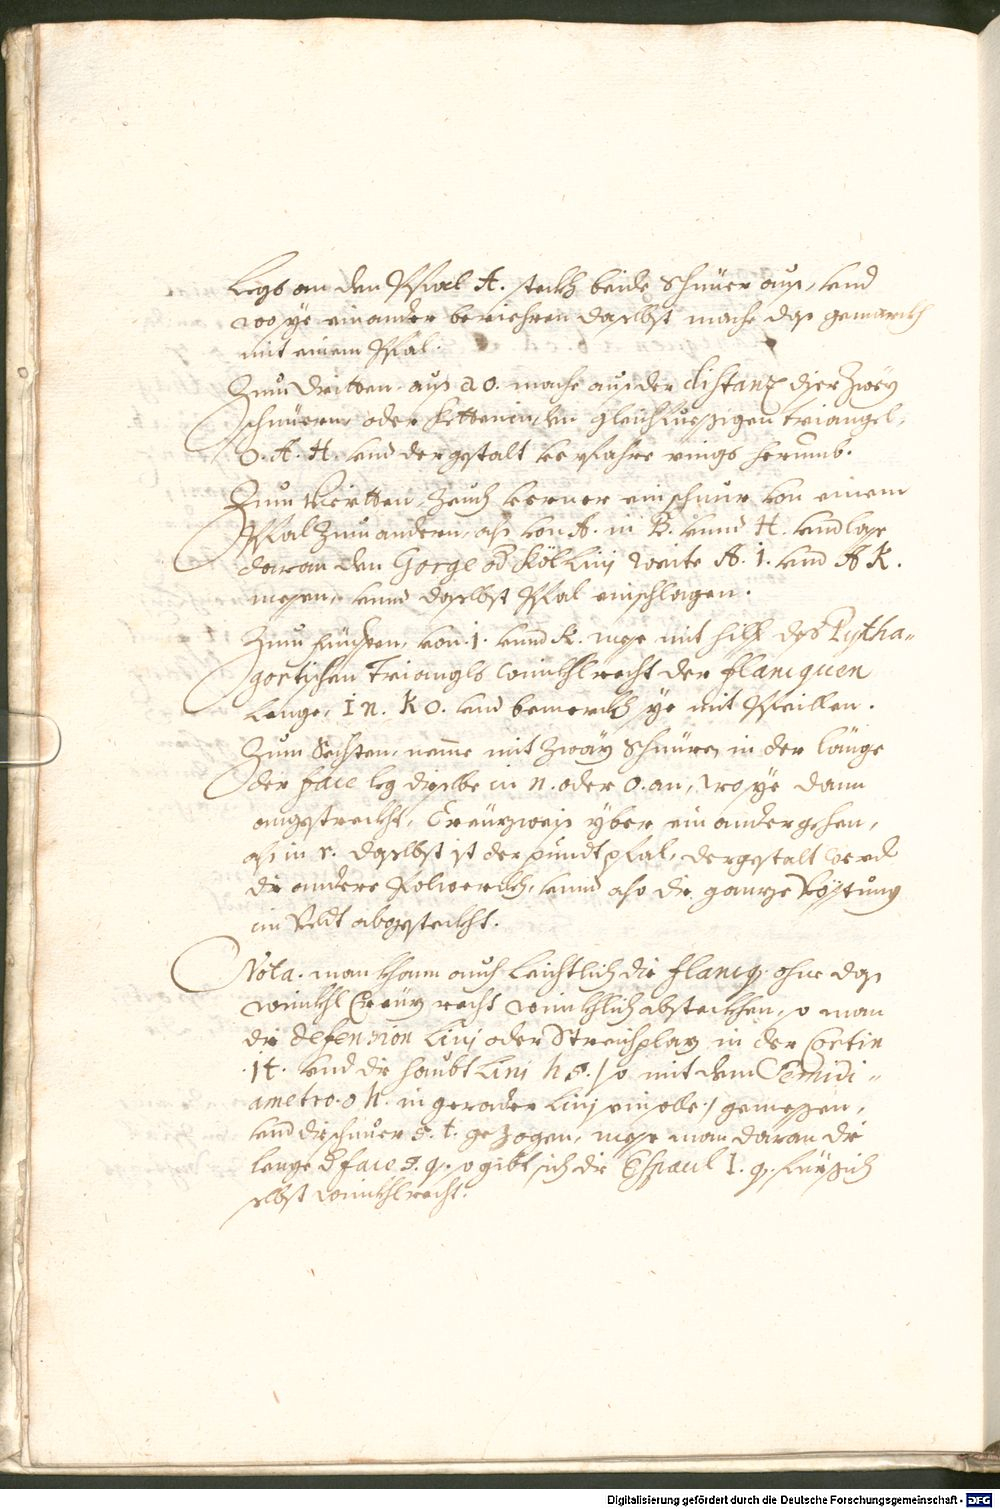 Legs an den Pfal A. steckh beide Schnüer auß, und
wo sye einander beriehren daselbst mache das gemarckh
mit einem Pfal.
Zum dritten auß a o. mache auß der distanz dier zwey
schnüeren, oder kettenen, ein gleichfüessigen triangel,
O. A. H. und dergestalt verfahre rings herumb.
Zum vierten, zeuch verner ein schnuer von einem
Pfal zum andern, als von A. in B. unnd H. und las
daran den Gorge od Köl Linj weite A. I. und A K.
messen, unnd daselbst Pfal einschlagen.
Zum fünften, von I. unnd K. mese mit hilf des Pytha-
gorischen Triangls winckhlrecht der flancquen
Lenge, I n. K o. und bemerckh sye mit Pfeillen.
Zum Sechsten, neme mit zwäy Schnüre, in der länge
der face leg dieselbe in n. oder o. an, wo sye dann
angestreckht, Creuzweis yber einander gehen,
als in r. daselbst ist der pundt pfal, dergestalt werd
die andere Polwerckh, unnd also die ganze Vöstung
im Veldt abgesteckht.
Nota. man khann auch Leichtlich die flancq. ohne das
winckhl Creuz recht winckhlich absteckhen, so man
die defension Linj oder Streichplaz in der Cortin
I t. und die haubt Linj h s. / so mit dem Semidi-
ametro. o h. in gerader Linj sein solle / gemessen,
und die schnuer s. t. gezogen, mese man daran die
lenge d face s. q. so gibt sich die Espaul I. q. für sich
selbst winckhlrecht.
Digitalisierung gefördert durch die Deutsche Forschungsgemeinschaft - DFG